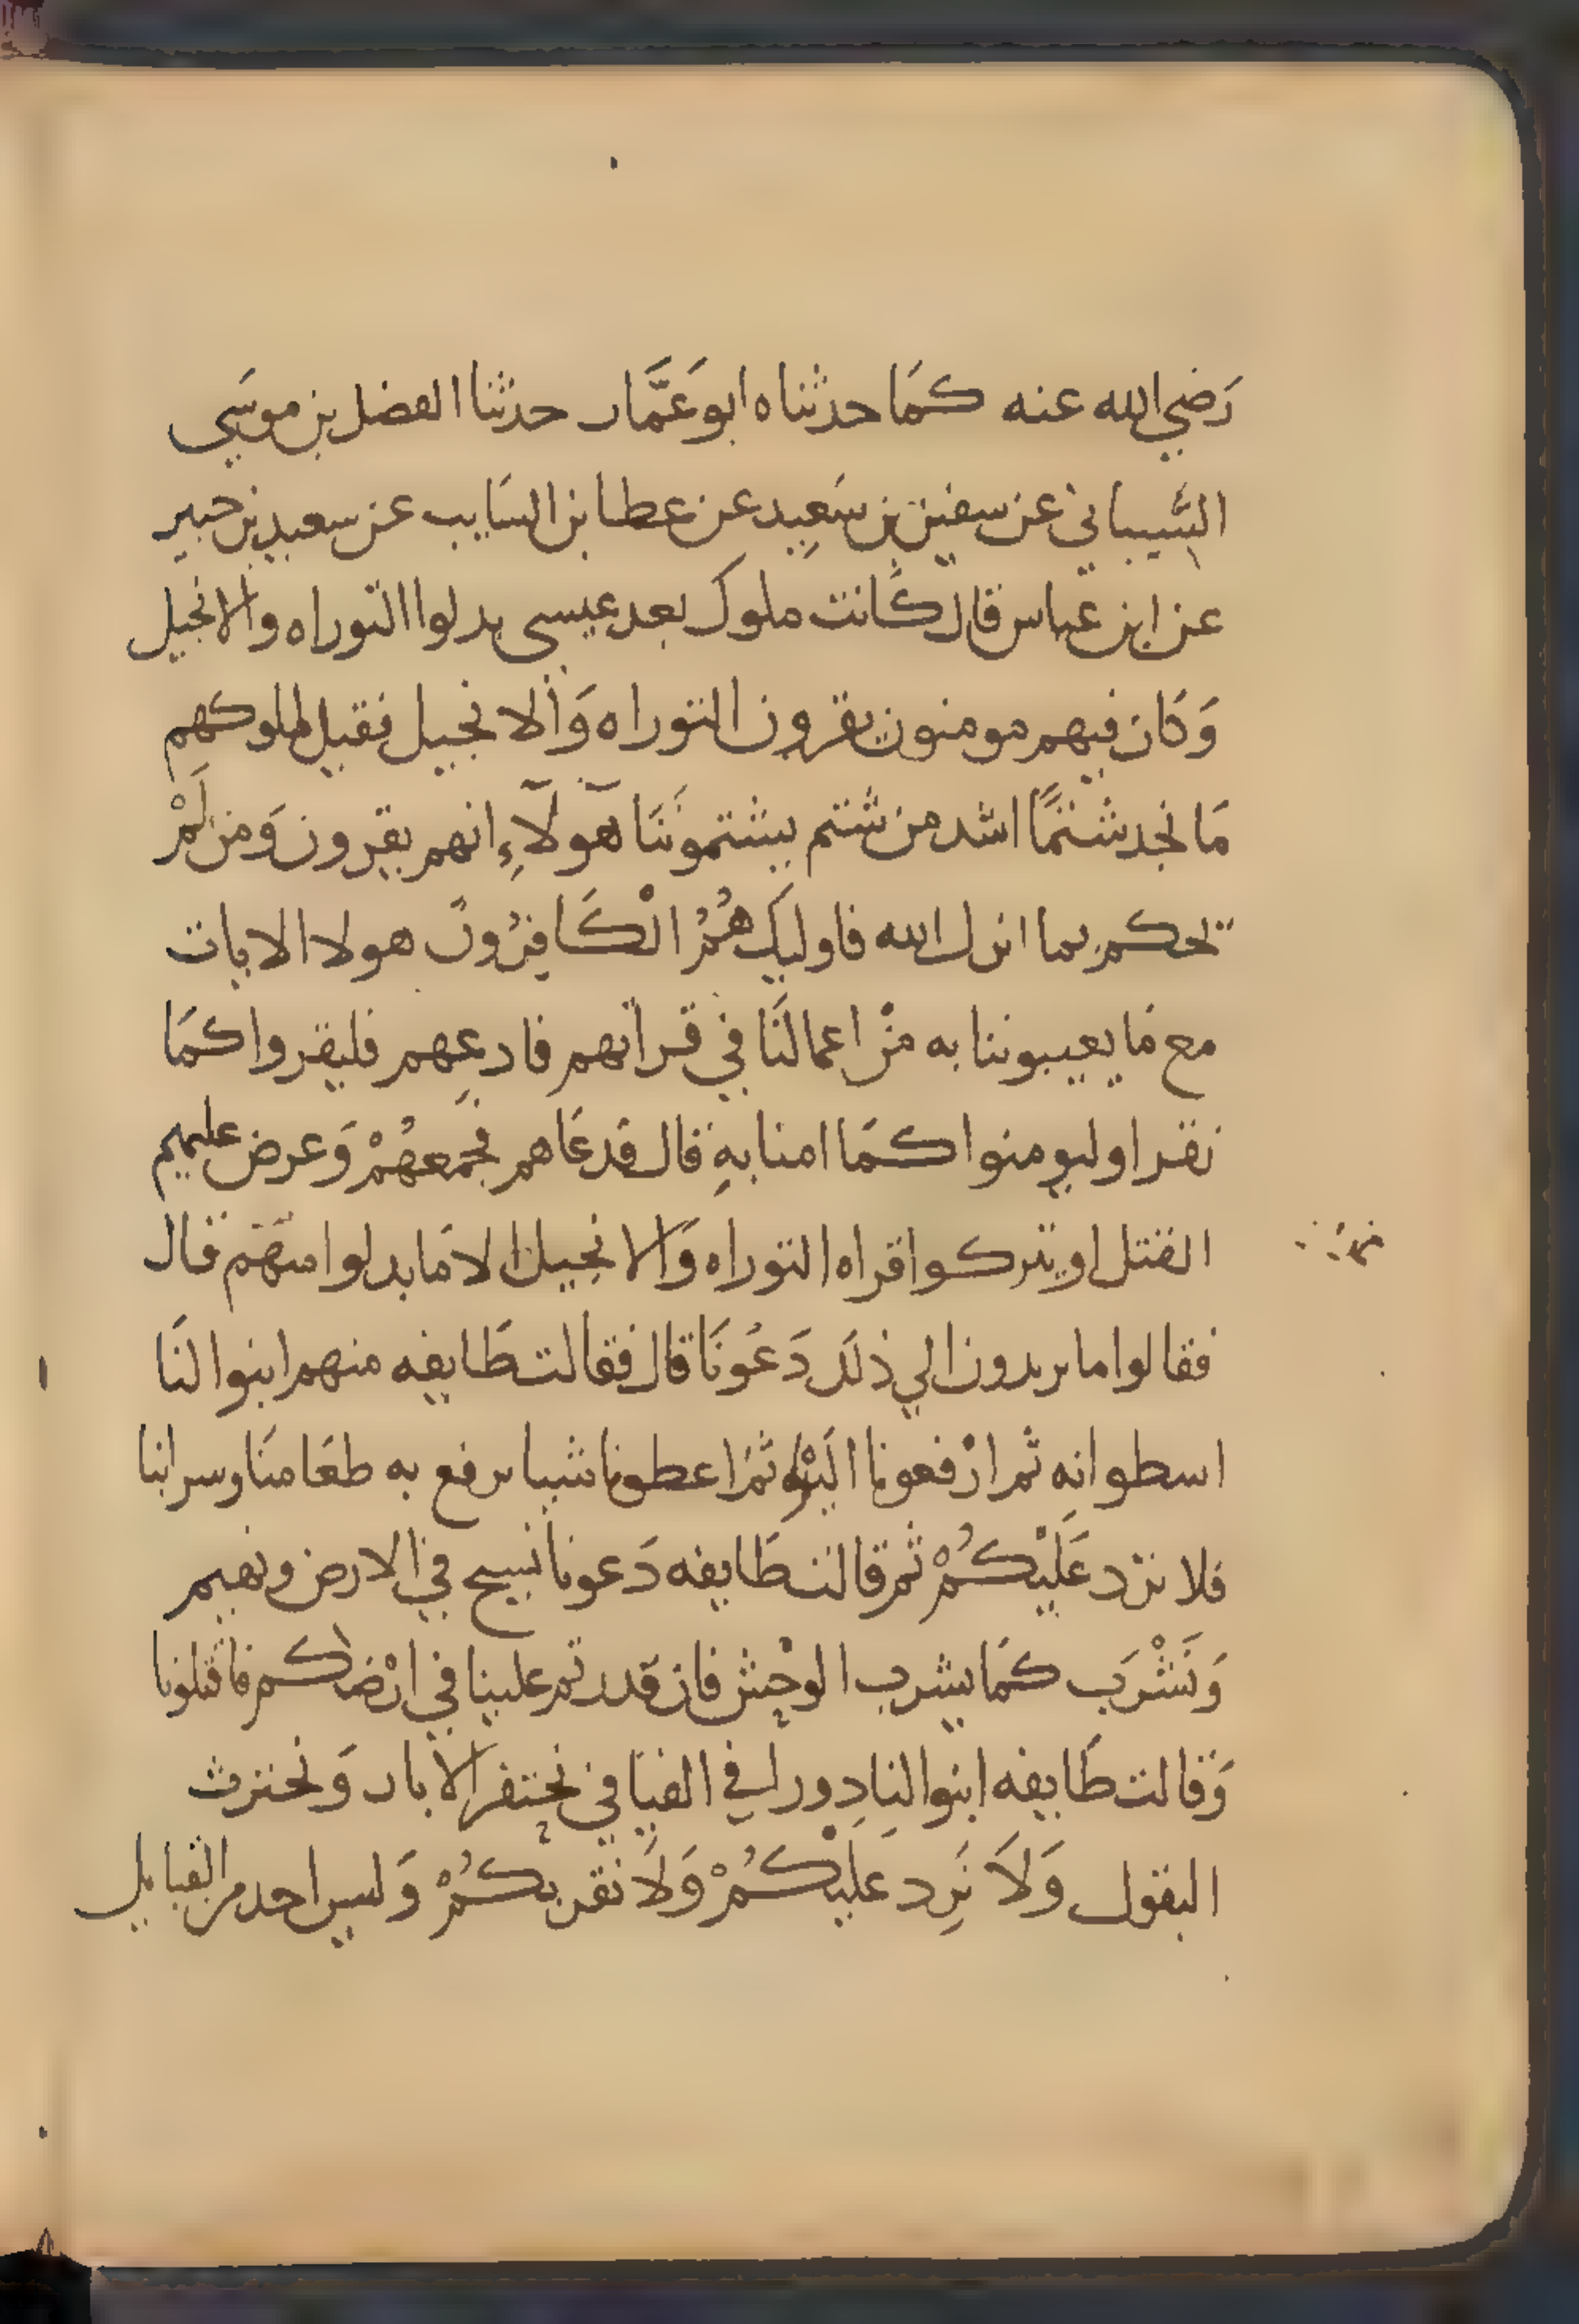 رَضي الله عنه كمَا حدثناه ابو عَمَّار حدثنا الفضل بن موسَي
السَّيباني عن سفين بن سَعِيد عن عطا بن السَايب عن سعيد بن جبير
عن ابن عباس قال كَانت ملوك بعد عيسى بدلوا التوراه والانجيل
وَكان فيهم مومنون يقرون التوراه وَالانجيل فقيل لملوكهم
مَا نجد شتمًا اشد من شتم يشتموننَا هَولآءِ انهم يقرون وَمن لَمْ
يحكم بما انزل الله فاوليك هُمُ الْكَافِرُونَ هولا الايات
مع مَا يعيبوننا به مْن اعمالنَا في قراتهم فادعهم فليقروا كمَا
نقرا وليومنوا كمَا امنا بهِ قال فدعَاهم فجمعهُمْ وَعرض عليهم
القتل او يتركوا قراه التوراه وَالانجيل الا مَا بدلوا منهَم قال
فقالوا ما يريدون الي ذلَك دَعُونَا قال فقالت طَايفه منهم ابنوا لنَا
اسطوانه ثم ارْفعونا اليْه ثمَ اعطونا شيا نرفع به طعَامنَا وسرابنا
فلا نرد عَليْكُمْ ثم قالت طَايفه دَعونا نسيح في الارض ونهيم
وَنَشْرَب كمَا يشرب الوحْش فان قدرتم علينا في ارْضكم فاقتلونا
وَقالت طَايفه ابنوا لنا دِورا في الفيَافي نحتفر الابار وَنحترث
البقول وَلاَ نَرِد عَليْكُمْ وَلاَ نقربكُمْ وَليس احد من القبايل